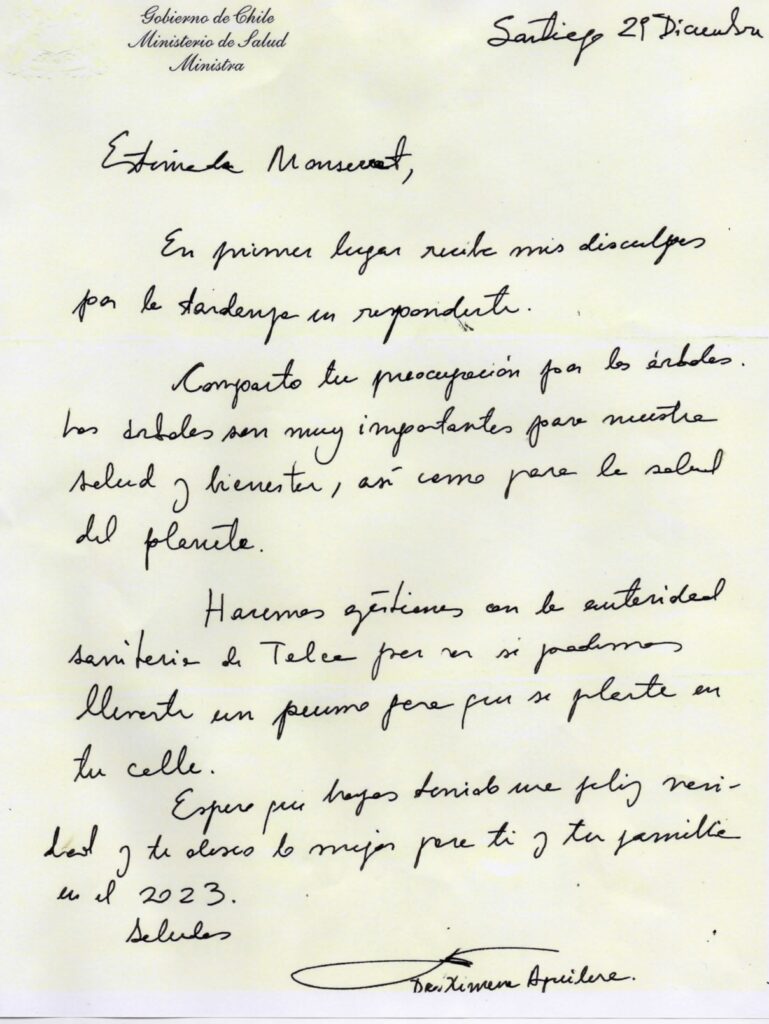 Gobierno de Chile
Ministerio de Salud
Ministra
Santiago 29 Diciembre
Estimada Monserrat,
En primer lugar recibe mis disculpas
por la tardanza en responderte.
Comparto tu preocupación por los árboles.
Los árboles son muy importantes para nuestra
salud y bienestar, así como para la salud
del planeta.
Haremos gestiones con la autoridad
sanitaria de Talca para ver si podemos
llevarte un peumo para que se plante en
tu calle.
Espero que hayas tenido una feliz navi-
dad y te deseo lo mejor para ti y tu familia
en el 2023.
Saludos
Dra Ximena Aguilera.